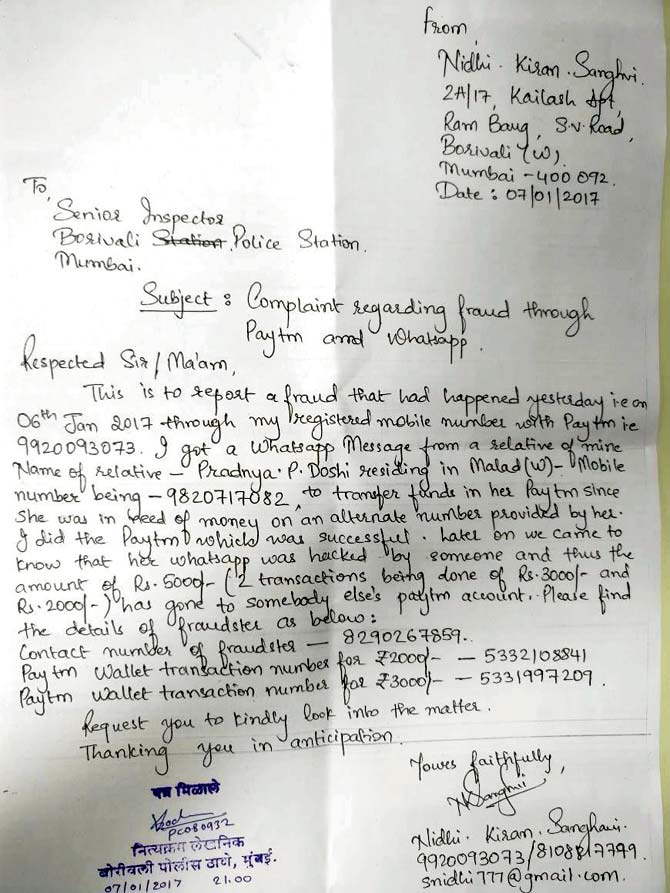 From,
Nidhi. Kiran. Sanghvi.
2A/17, Kailash Apt,
Ram Baug, S.V. Road,
Borivali (W).
Mumbai - 400 092.
Date : 07/01/2017
To,
Senior Inspector
Borivali Station Police Station.
Mumbai.
Subject : Complaint regarding fraud through
Paytm and Whatsapp.
Respected Sir/Ma'am,
This is to report a fraud that had happened yesterday i.e on
06th Jan 2017 through my registered mobile number with Paytm i.e
9920093073. I got a Whatsapp Message from a relative of mine
Name of relative - Pradnya. P. Doshi residing in Malad (W) - Mobile
number being - 9820717082, to transfer funds in her Paytm since
she was in need of money on an alternate number provided by her.
I did the Paytm which was successful. Later on we came to
know that her whatsapp was hacked by someone and thus the
amount of Rs. 5000/- (2 transactions being done of Rs. 3000/- and
Rs. 2000/-) has gone to somebody else's paytm account. Please find
the details of fraudster as below:
Contact number of fraudster - 8290267859.
Paytm Wallet transaction number for ₹2000/- - 5332108841
Paytm Wallet transaction number for ₹3000/- - 5331997209.
Request you to kindly look into the matter.
Thanking you in anticipation.
Yours faithfully,
NKSanghvi
Nidhi. Kiran. Sanghvi.
9920093073/8108817799.
snidhi777@gmail.com.
पत्र मिळाले
PC080932
नित्यक्रम लेखनिक
बोरीवली पोलीस ठाणे, मुंबई.
07/01/2017 21.00